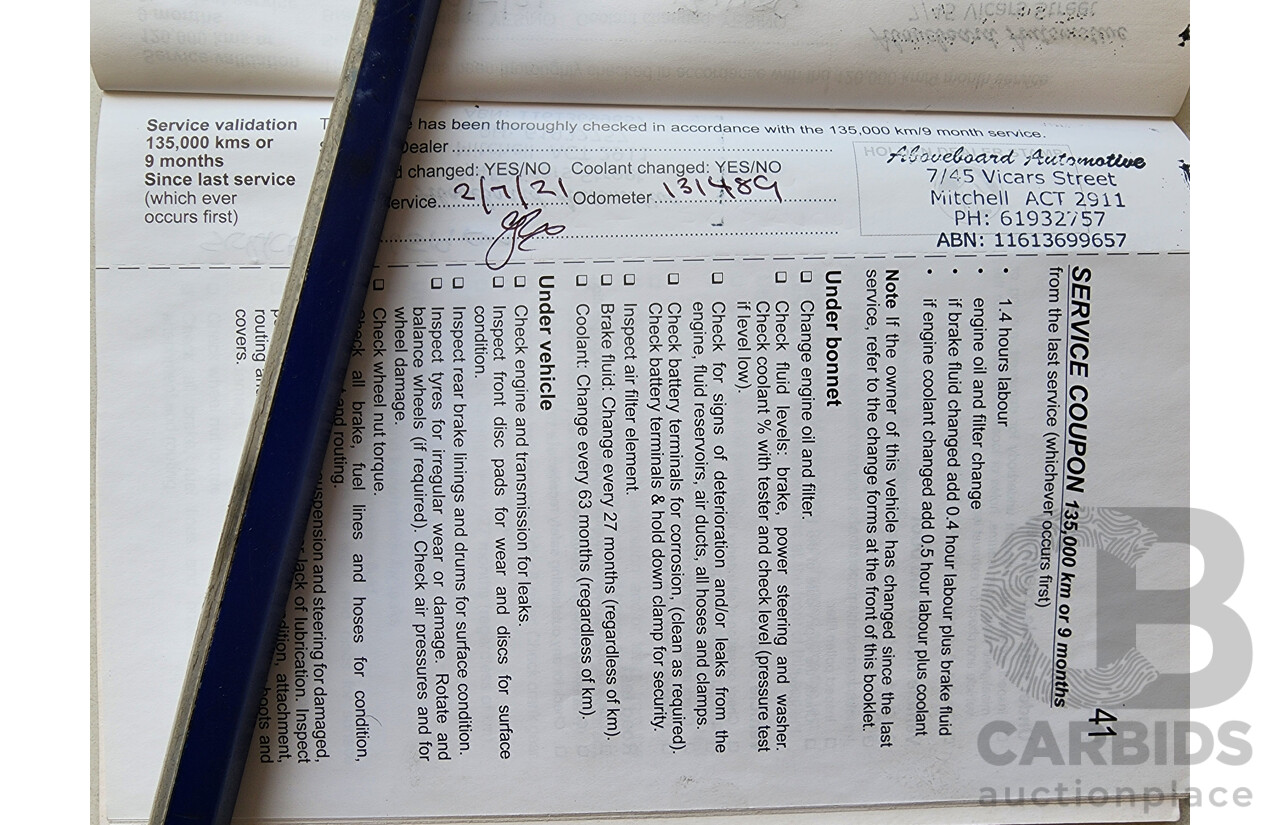 Service validation
135,000 kms or
9 months
Since last service
(which ever
occurs first)
has been thoroughly checked in accordance with the 135,000 km/9 month service.
Dealer
changed: YES/NO Coolant changed: YES/NO
2/7/21 Odometer 131489
Aboveboard Automotive
7/45 Vicars Street
Mitchell ACT 2911
PH: 61932757
ABN: 11613699657
41
SERVICE COUPON 135,000 km or 9 months
from the last service (whichever occurs first)
• 1.4 hours labour
• engine oil and filter change
• if brake fluid changed add 0.4 hour labour plus brake fluid
• if engine coolant changed add 0.5 hour labour plus coolant
Note If the owner of this vehicle has changed since the last
service, refer to the change forms at the front of this booklet.
Under bonnet
❑ Change engine oil and filter.
❑ Check fluid levels: brake, power steering and washer.
Check coolant % with tester and check level (pressure test
if level low).
❑ Check for signs of deterioration and/or leaks from the
engine, fluid reservoirs, air ducts, all hoses and clamps.
❑ Check battery terminals for corrosion, (clean as required).
Check battery terminals & hold down clamp for security.
❑ Inspect air filter element.
❑ Brake fluid: Change every 27 months (regardless of km).
❑ Coolant: Change every 63 months (regardless of km).
Under vehicle
❑ Check engine and transmission for leaks.
❑ Inspect front disc pads for wear and discs for surface
condition.
❑ Inspect rear brake linings and drums for surface condition.
❑ Inspect tyres for irregular wear or damage. Rotate and
balance wheels (if required). Check air pressures and for
wheel damage.
❑ Check wheel nut torque.
all brake, fuel lines and hoses for condition,
and routing.
suspension and steering for damaged,
lack of lubrication. Inspect
attachment,
boots and
routing
covers.
CARBIDS
auctionplace